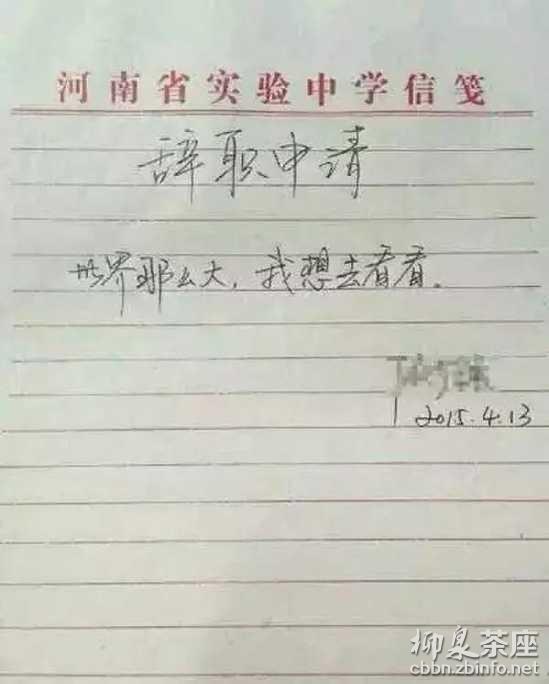 河南省实验中学信笺
辞职申请
世界那么大，我想去看看。
2015.4.13
柳泉茶座
cbbn.zbinfo.net